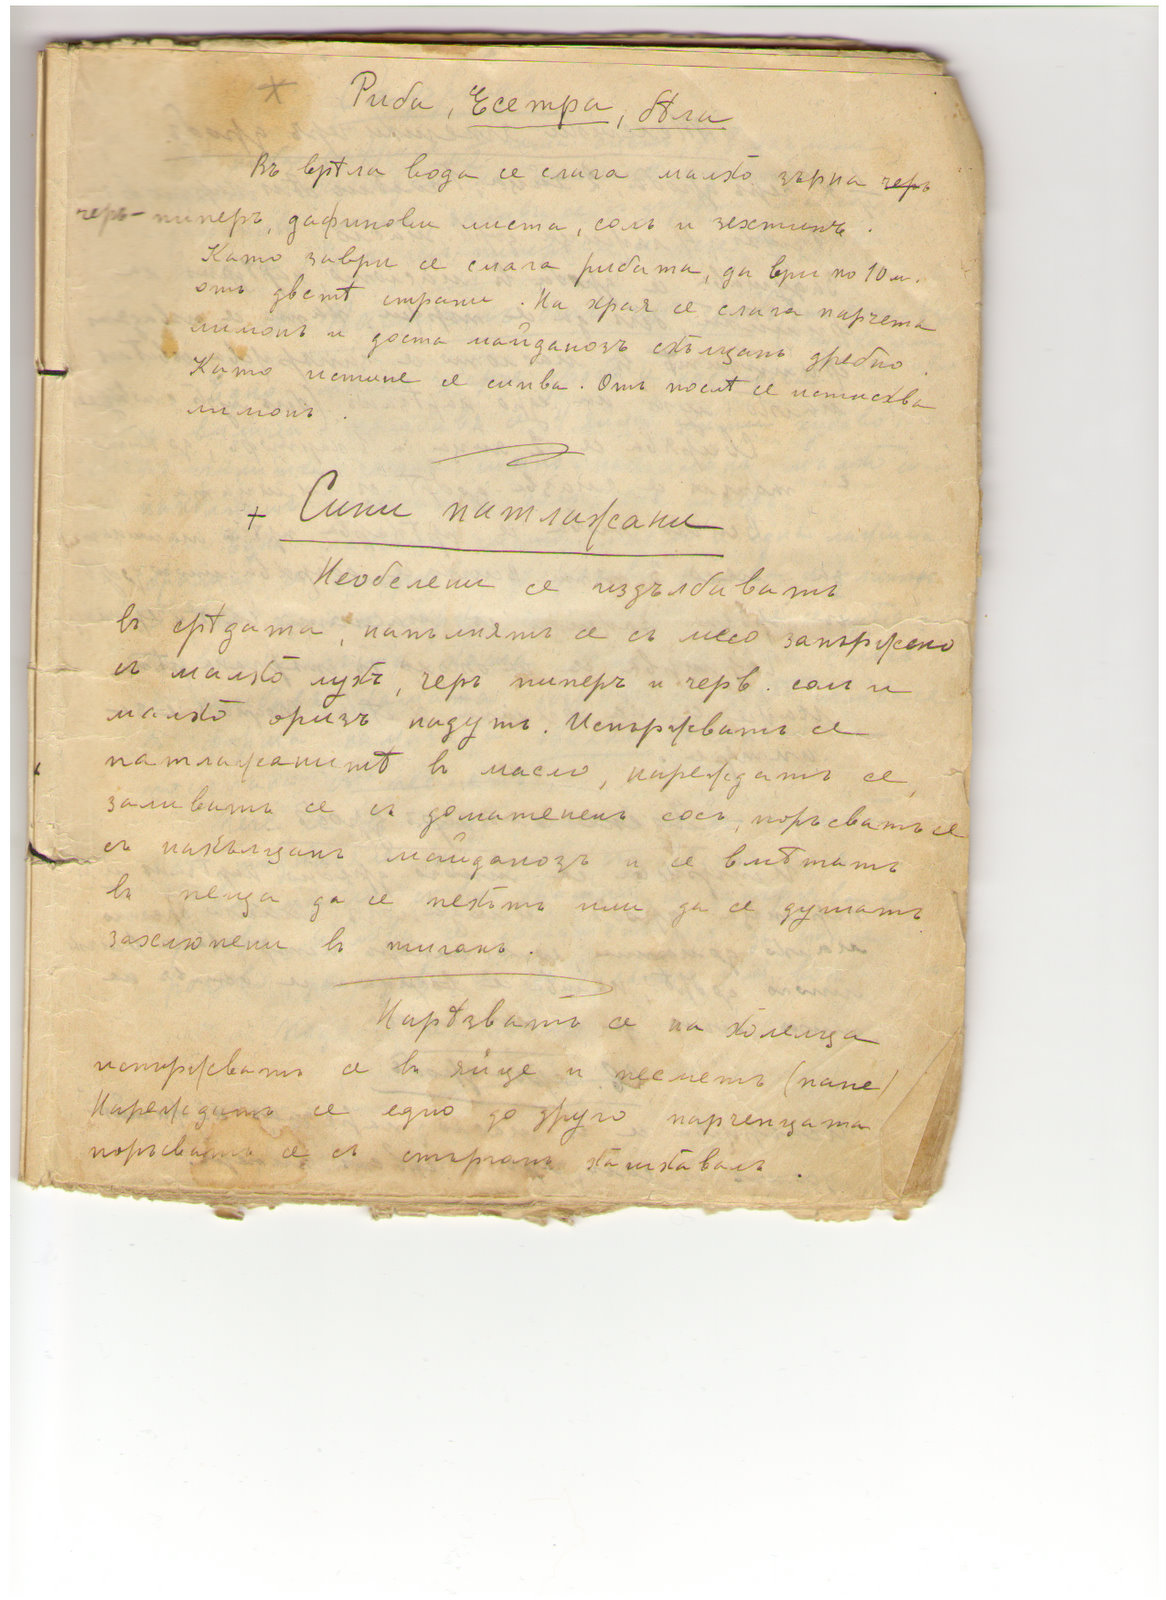 Риба, Есетра, бѣла
Въ врѣла вода се слага малко зърна черъ
черъ-пиперъ, дафинови листа, соль и зехтинъ.
Като заври се слага рибата, да ври по 10 м.
отъ дветѣ страни. На края се слага парчета
лимонъ и доста майданозъ скълцанъ дребно.
Като истине се сипва. Отъ послѣ се истисква
лимонъ.
+ Сини патлажани
Необелени се издълбаватъ
въ срѣдата, напълнятъ се съ месо запържено
съ малко лукъ, черъ пиперъ и черв. соль и
малко оризъ надутъ. Испържватъ се
патлажанитѣ въ масло, нареждатъ се,
заливатъ се съ доматененъ сосъ, поръсватъ се
съ накълцанъ майданозъ и се влѣтатъ
въ пеща да се пекътъ или да се душатъ
заключени въ тиганъ.
Нарѣзватъ се на колелца
испържватъ се въ яйце и песметъ (пане)
Нареждатъ се едно до друго парченцата
поръсватъ се съ стърганъ кашкавалъ.